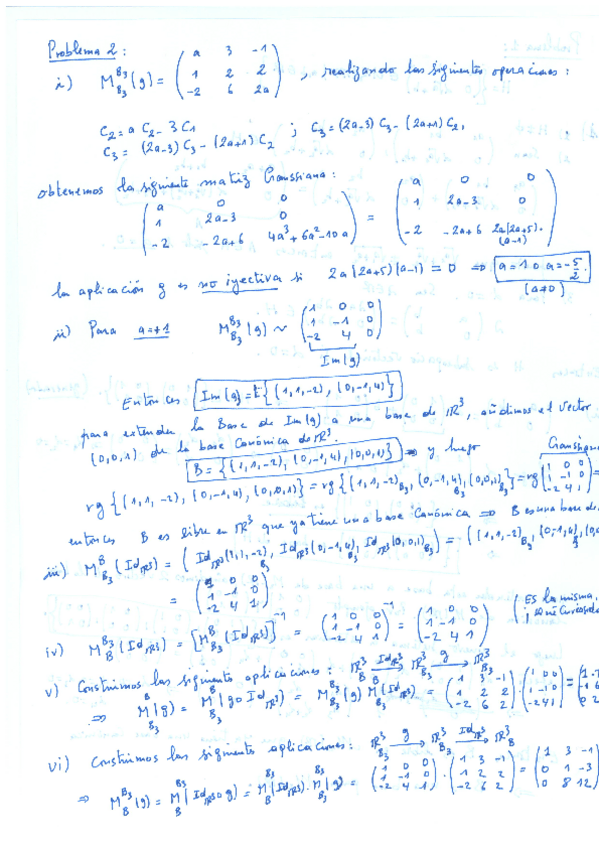 Problema 2 :
i) M^{B3}_{B3}(g) = ( a 3 -1 ; 1 2 2 ; -2 6 2a ) , realizando las siguientes operaciones :
C2 = a C2 - 3 C1 ; C3 = (2a-3) C3 - (2a+1) C2,
C3 = (2a-3) C3 - (2a+1) C2
obtenemos la siguiente matriz Gaussiana :
( a 0 0 ; 1 2a-3 0 ; -2 -2a+6 4a³+6a²-10a ) = ( a 0 0 ; 1 2a-3 0 ; -2 -2a+6 2a(2a+5)·(a-1) )
la aplicación g es no inyectiva si 2a(2a+5)(a-1) = 0 ⇒ a=1 o a=-5/2.
(a≠0)
ii) Para a=+1 M^{B3}_{B3}(g) ~ ( 1 0 0 ; 1 -1 0 ; -2 4 0 )
Im(g)
Entonces Im(g) = { (1,1,-2), (0,-1,4) }
para extender la Base de Im(g) a una base de ℝ³, añadimos el vector
(0,0,1) de la base Canónica de ℝ³.
B = { (1,1,-2), (0,-1,4), (0,0,1) } y luego Gaussiana
rg { (1,1,-2), (0,-1,4), (0,0,1) } = rg { (1,1,-2)_{B3}, (0,-1,4)_{B3}, (0,0,1)_{B3} } = rg ( 1 0 0 ; 1 -1 0 ; -2 4 1 ) =
entonces B es libre en ℝ³ que ya tiene una base Canónica ⇒ B es una base de
iii) M^{B}_{B3}(Id_{ℝ³}) = ( Id_{ℝ³}(1,1,-2)_{B3}, Id_{ℝ³}(0,-1,4)_{B3}, Id_{ℝ³}(0,0,1)_{B3} ) = ( (1,1,-2)_{B3}, (0,-1,4)_{B3}, (0,
= ( 1 0 0 ; 1 -1 0 ; -2 4 1 )
iv) M^{B3}_{B}(Id_{ℝ³}) = [M^{B}_{B3}(Id_{ℝ³})]^{-1} = ( 1 0 0 ; 1 -1 0 ; -2 4 1 )^{-1} = ( 1 0 0 ; 1 -1 0 ; -2 4 1 ) ( Es la misma,
v) Construimos las siguientes aplicaciones : ℝ³_{B} Id_{ℝ³} → ℝ³_{B3} g → ℝ³_{B3}
⇒ M^{B}_{B3}(g) = M^{B}_{B3}(g∘Id_{ℝ³}) = M^{B3}_{B3}(g) M(Id_{ℝ³}) = ( 1 3 -1 ; 1 2 2 ; -2 6 2 ) · ( 1 0 0 ; 1 -1 0 ; -2 4 1 ) =
vi) Construimos las siguientes aplicaciones : ℝ³_{B3} g → ℝ³_{B3} Id_{ℝ³} → ℝ³_{B}
⇒ M^{B3}_{B}(g) = M^{B3}_{B}(Id_{ℝ³}∘g) = M^{B3}_{B}(Id_{ℝ³}) · M^{B3}_{B3}(g) = ( 1 0 0 ; 1 -1 0 ; -2 4 1 ) · ( 1 3 -1 ; 1 2 2 ; -2 6 2 ) = ( 1 3 -1 ; 0 1 -3 ; 0 8 12 )